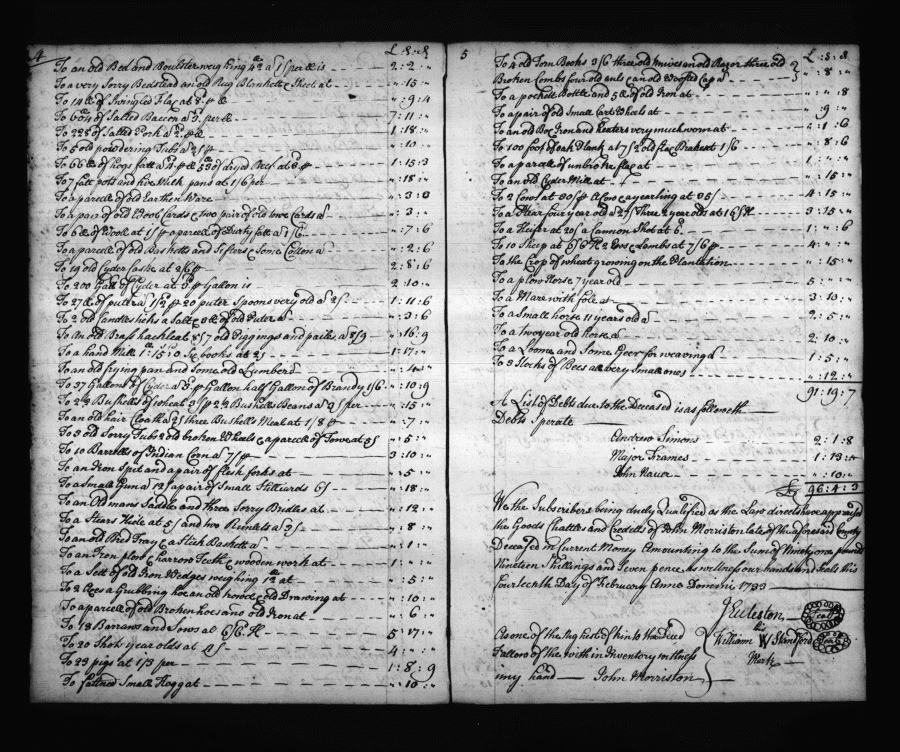 4
£ : S : d
To an old Bed and Boulster weighing 42 a 1/ per lb is 2 : 2 : „
To a very Sorry Bedstead an old Rug Blankett & Sheet at „ : 15 : „
To 14 lb of Swingled Flax at 8 p lb „ : 9 : 4
To 604 of Salted Bacon a 3 per lb 7 : 11 : „
To 228 of Salted Pork a 2 p lb 1 : 18 : „
To 5 old powdering Tubs a 2/ p „ : 10 : „
To 66 lb of hogs fatt a 3 p lb of dryed Beef at 1 : 15 : 3
To 7 fatt pots and five Milk pans at 1/6 per „ : 18 : „
To a parcele of old Earthen Ware „ : 3 : 0
To a pair of old Wool Cards & two pair of old tow Cards a „ : 3 : „
To 6 lb of Wool at 1/ p a parcele of Durty fatt a 1/6 „ : 7 : 6
To a parcele of old Basketts and Sifters & Some Cotton a „ : 2 : 6
To 19 old Cyder Caske at 2/6 p 2 : 8 : 6
To 200 Galls of Cyder at 3 p Gallon is 2 : 10 : „
To 27 lb of puter a 1/2 p 20 puter Spoons very old a 2/ 1 : 11 : 6
To 2 old Candlesticks a Salt & 8 lb of old Puter a „ : 3 : 6
To an old Brass 8/ 7 old Piggings and pailes a 8/9 „ : 16 : 9
To a hand Mill 1 : 15 : 0 books at 2/ 1 : 17 : „
To an old frying pan and Some old Lumber a „ : 4 : „
To 37 Gallons of Cyder a 3 p Gallon half Gallon of Brandy 1/6 „ : 10 : 9
To 2½ Bushells of wheat 3/ p 2½ Bushells Beans a 2/ per „ : 15 : „
To an old hair Cloath a 2/ three Bushells Meal at 1/8 p „ : 7 : „
To 3 old Sorry Tubs 2 old broken Wheels & a parcele of Tow at 3/ „ : 5 : „
To 10 Barrells of Indian Corn a 7/ p 3 : 10 : „
To an Iron Spit and a pair of flesh forks at „ : 5 : „
To a Small Gun a 12/ a pair of Small Stilliards 6/ „ : 18 : „
To an Old mans Saddle and three Sorry Bridles at „ : 12 : „
To a Stears Hide at 5/ and two Runlets a 3/ „ : 8 : „
To an old Bed Tray & a Stich Baskett a „ : 1 : „
To an Iron plow & harrow Teeth & wooden work at 1 : „ : „
To a Sett of old Iron Wedges weighing 12 at „ : 5 : „
To 2 Axes a Grubbing hoe an old howel & old Drawing at „ : 10 : „
To a parcele of old Broken hoes and old Iron at „ : 6 : „
To 18 Barrows and Sows at 6/6 5 : 17 : „
To 20 Shots year olds at 4/ 4 : „ : „
To 23 pigs at 1/3 per 1 : 8 : 9
To fattned Small Hogg at „ : 10 : „
5
£ : S : d
To 4 old Torn Books 3/6 three old knives an old Razor three old
Broken Combs four old awls & an old Wosted Cap a „ : 8 : „
To a pockett Bottle and 5 lb of old Iron at „ : „ : 8
To a pair of old Small Cart Wheels at „ 9 : „
To an old Box Iron and heaters very much worn at „ 1 : 6
To 100 foot of oak Plank at 7/ 2 old flax Brakes 1/6 „ : 8 : 6
To a parcele of unbroke flax at 1 : „ : „
To an old Cyder Mill at „ : 15 : „
To 2 Cows at 30/ p A Cow & a yearling at 35/ 4 : 15 : „
To a Stear four year old a 27/ Three 2 year olds at 16/ 3 : 15 : „
To a Heifer at 20/ a Cannon Shot at 6 1 : „ : 6
To 10 Sheep at 5/ 2 Ews & Lambs at 7/6 p 4 : „ : „
To the Crop of wheat growing on the Plantation „ : 15 : „
To a plow Horse 7 year old 5 : „ : „
To a Mare with fole at 3 : 10 : „
To a small horse 11 years old a 2 : 5 : „
To a two year old horse a 2 : 10 : „
To a Loome and Some Geer for weaving a 1 : 5 : „
To 3 Stocks of Bees all very Small ones „ : 12 : „
91 : 19 : 7
A List of Debts due to the Deceased is as followeth
Debts : perate
Andrew Simons 2 : 1 : 8
Major Frames 1 : 13 : „
John Naue „ : 10 : „
£ 96 : 4 : 3
We the Subscribers being duely Qualified as the Law directs have appraised
the Goods Chattles and Credetts of John Morriston late of the aforesaid County
Deceased in Current Money Amounting to the Sum of Ninety one pounds
Nineteen Shillings and Seven pence As witness our hands and Seals this
fourteenth Day of February Anno Domini 1733
J Eccleston Seal
his
William W Standford Seal
Mark
As one of the highest of kin to the Decd
I allow of the with in Inventory witness
my hand John Morriston